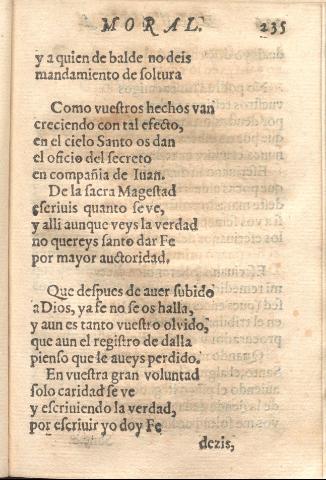 MORAL. 235
y a quien de balde no deis
mandamiento de soltura
Como vuestros hechos van
creciendo con tal efecto,
en el cielo Santo os dan
el oficio del secreto
en compañia de Iuan.
De la sacra Magestad
escriuis quanto se ve,
y alli aunque veys la verdad
no quereys santo dar Fe
por mayor auctoridad.
Que despues de auer subido
a Dios, ya fe no se os halla,
y aun es tanto vuestro oluido,
que aun el registro de dalla
pienso que le aueys perdido.
En vuestra gran voluntad
solo caridad se ve
y escriuiendo la verdad,
por escriuir yo doy Fe
dezis,